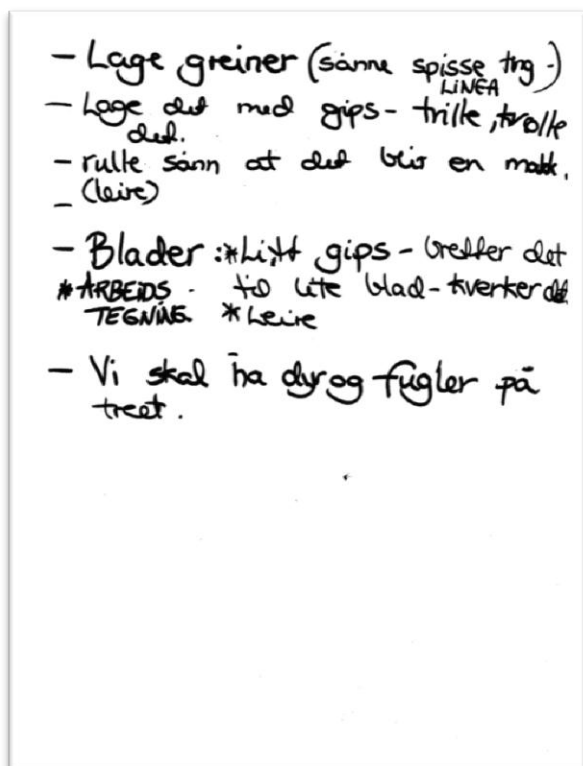 - Lage greiner (sånne spisse ting -)
LINEA
- Lage det med gips - trille, trolle
det.
- rulle sånn at det blir en makk.
- (leire)
- Blader : *Litt gips - bretter det
*ARBEIDS - til lite blad - kverker det
TEGNING. *Leire
- Vi skal ha dyr og fugler på
treet.